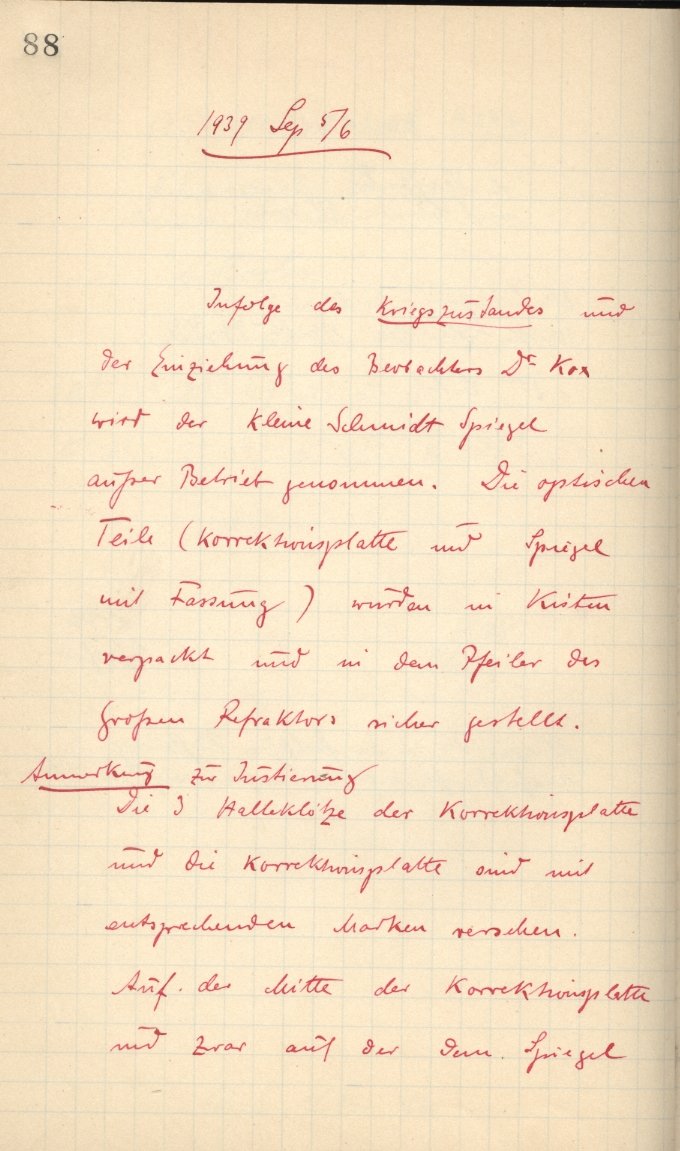 88
1939 Sep 5/6
Infolge des Kriegszustandes und
der Einziehung des Beobachters Dr Kox
wird der kleine Schmidt Spiegel
außer Betrieb genommen. Die optischen
Teile (Korrektionsplatte und Spiegel
mit Fassung) wurden in Kisten
verpackt und in dem Pfeiler des
Großen Refraktors sicher gestellt.
Anmerkung zur Justierung
Die 3 Halteklötze der Korrektionsplatte
und die Korrektionsplatte sind mit
entsprechenden Marken versehen.
Auf der Mitte der Korrektionsplatte
und zwar auf der dem Spiegel